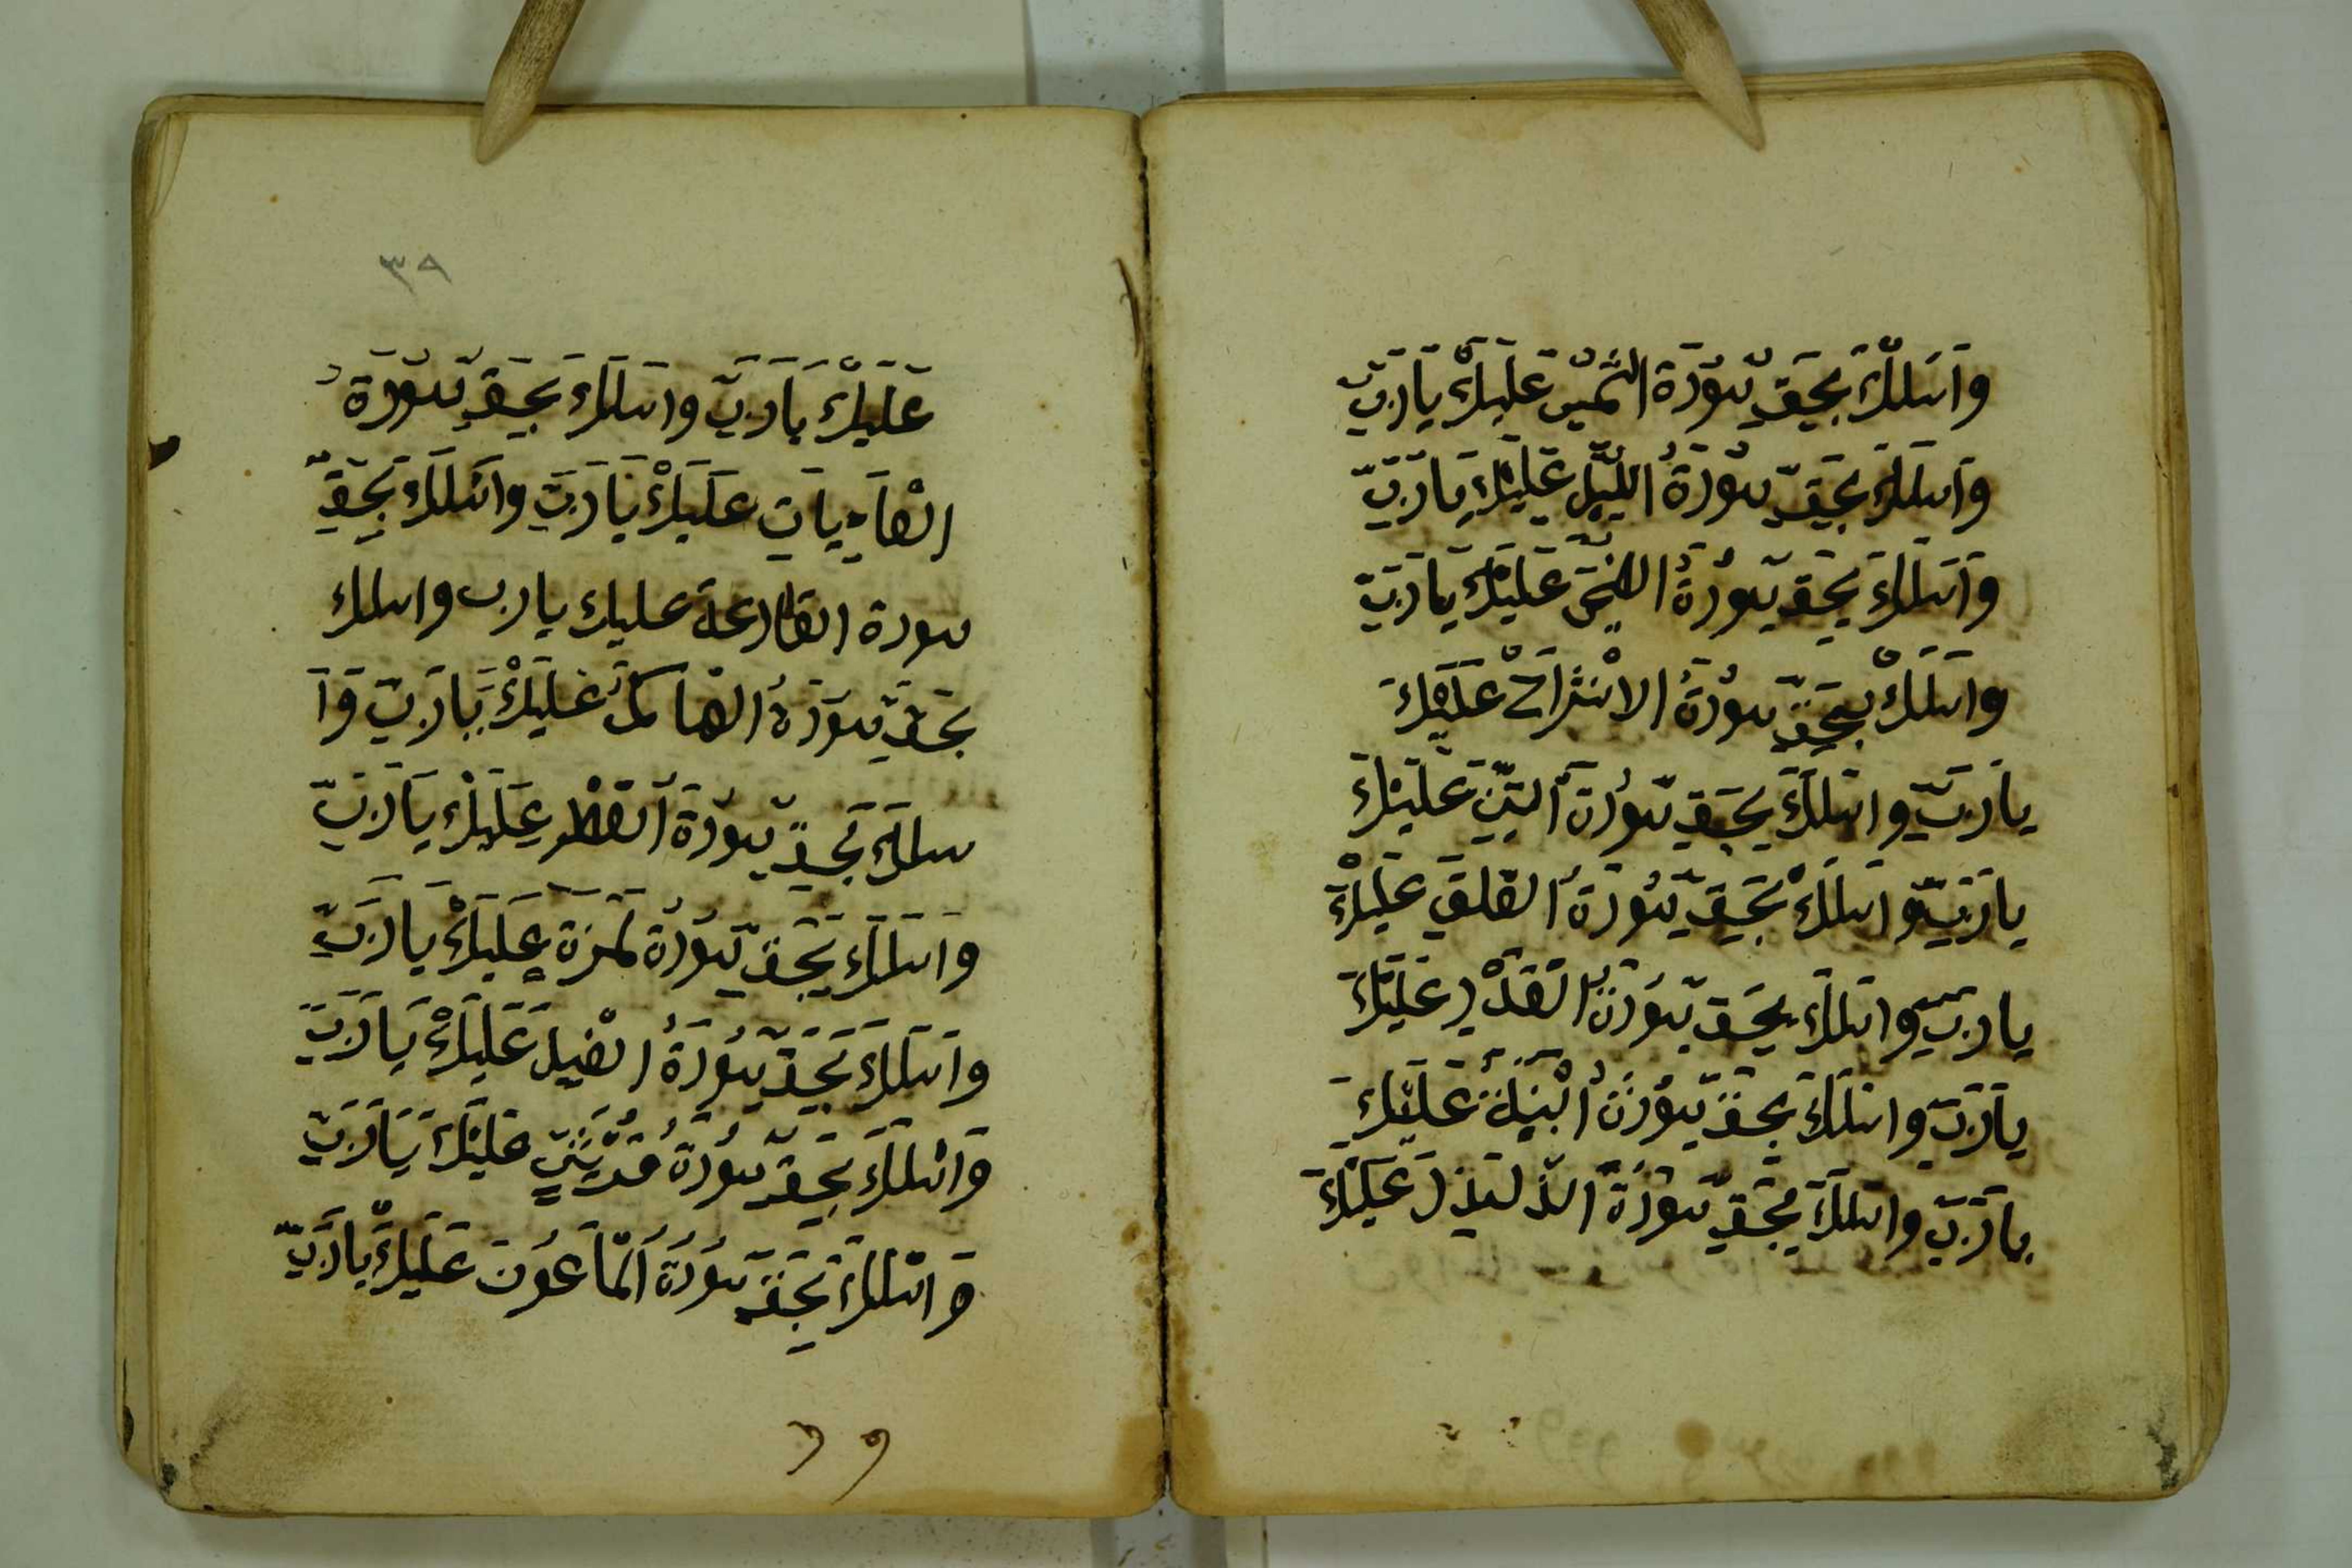 وَاَسَلُكَ بِحَقِّ سُوْرَة الشَّمْسِ عَلَيْكَ يَارَبِّ
وَاَسلكَ بِحَقِّ سُوْرَةُ اللَّيْلِ عَلَيْكَ يَارَبِّ
وَاَسَلكَ بِحَقِّ سُوْرَةُ الضحَى عَلَيْكَ يَارَبِّ
وَاسَلَكْ بِحَقِّ سُوْرَةُ الانْشَرَاحْ عَلَيْكَ
يارَبِّ وَاسَلكَ بِحَقِّ سُوْرَة اَلتِّيْنِ عَلَيْكَ
يارَبِّ وَاسلكْ بِحَقِّ سُوْرَةُ الْعَلَقِ عَلَيْكَ
يارَبِّ وَاسلكَ بِحَقِّ سُوْرَة الْقَدْرِ عَلَيْكَ
يارَبِّ وَاسَلكَ بِحَقِّ سُوْرَةُ الْبَيِّنَةُ عَلَيْكَ
يارَبِّ وَاسلكَ بِحَقِّ سُوْرَةُ عَلَيْكَ
٣٨
عَلَيْكَ يَارَبِّ وَاسلَكَ بِحَقِّ سُوْرَةُ
الْعَادِيَاتِ عَلَيْكَ يَارَبِّ وَاسَلكَ بِحَقِّ
سورة القارعة عليك يارب واسلك
بحَقِّ سُوْرَةُ الهاكمُ عَلَيْكَ يَارَبِّ وَا
سلكَ بِحَقِّ سُوْرَةُ عَلَيْكَ يَارَبِّ
وَاسَلَكَ بِحَقِّ سُوْرَةُ لمزة عَلَيْكَ يَارَبِّ
وَاسَلكَ بِحَقِّ سُوْرَةُ الْفِيلَ عَلَيْكَ يَارَبِّ
وَاسْلكَ بِحَقِّ سُوْرَةُ عَلَيْكَ يَارَبِّ
وَاسْلكَ بِحَقِّ سُوْرَةُ اَلْمَاعُونَ عَلَيْكَ يَارَبِّ